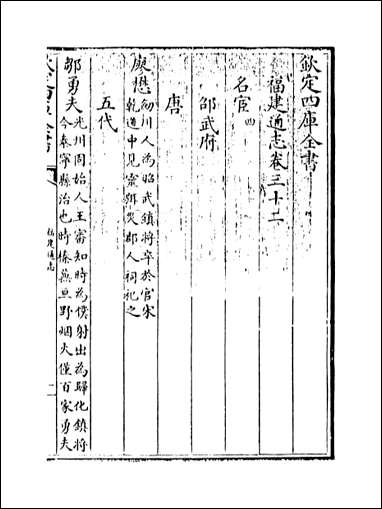 欽定四庫全書
福建通志卷三十二
名宦四
邵武府
唐
廖懋劒川人為昭武鎮將卒於官宋
乾道中見靈鄉災郡人祠祀之
五代
鄒勇夫光川固始人王審知時為僕射出為歸化鎮將
今泰寧縣治也時榛蕪亘野烟火僅百家勇夫
福建通志
一